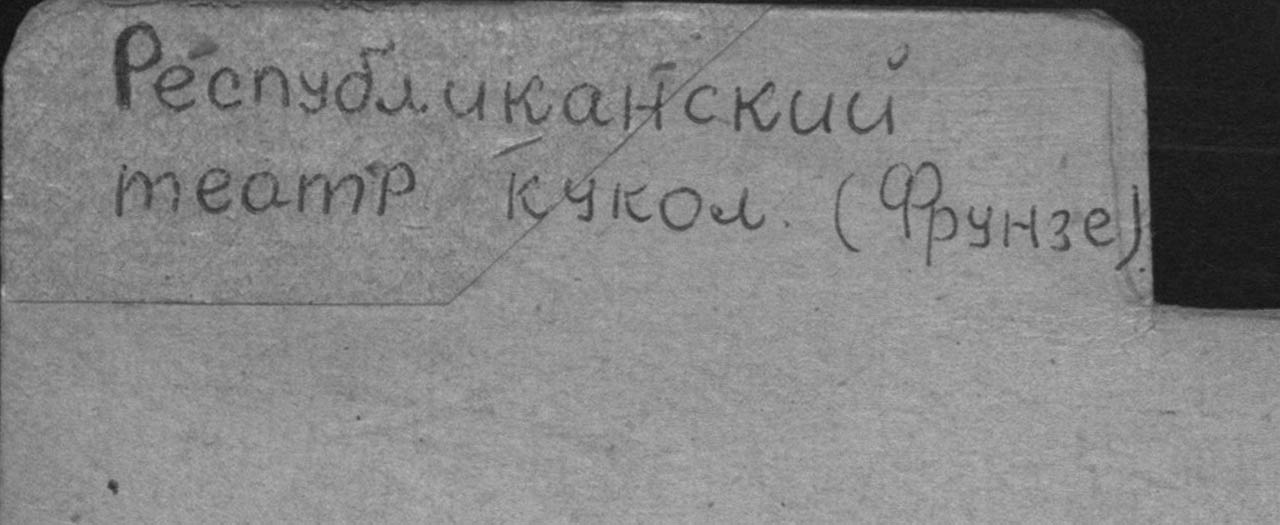 Республиканский
театр кукол. (Фрунзе)